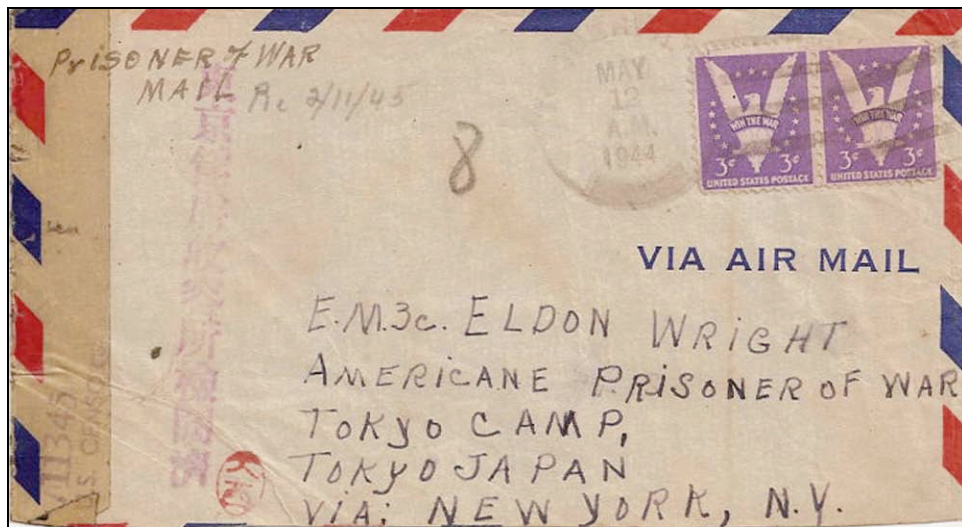 PriSONER of WAR
MAIL Rc 2/11/45
8
MAY
12
A.M.
1944
WIN THE WAR
3¢ 3¢
UNITED STATES POSTAGE
WIN THE WAR
3¢ 3¢
UNITED STATES POSTAGE
VIA AIR MAIL
E.M.3c. ELDON WRIGHT
AMERICANE PRISONER OF WAR
TOKYO CAMP,
TOKYO JAPAN
ViA: NEW YORK, N.Y.
11345
S. CENSOR